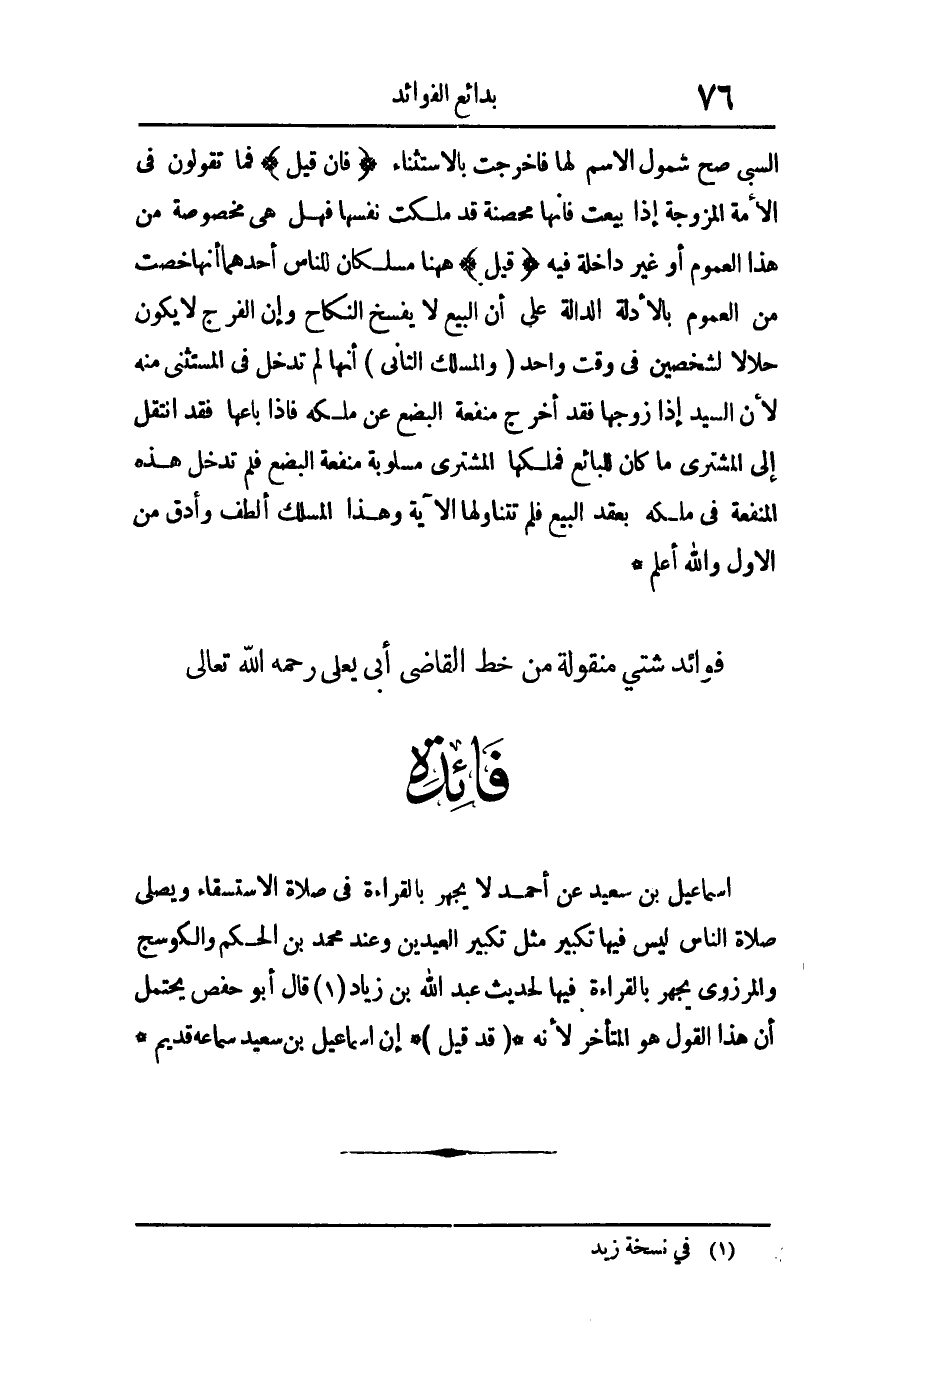 ٧٦ بدائع الفوائد
السبى صح شمول الاسم لها فاخرجت بالاستثناء ﴿ فان قيل ﴾ فما تقولون فى
الأمة المزوجة إذا بيعت فانها محصنة قد ملكت نفسها فهل هى مخصوصة من
هذا العموم أو غير داخلة فيه ﴿ قيل ﴾ ههنا مسلكان للناس أحدهما أنها خصت
من العموم بالأدلة الدالة على أن البيع لا يفسخ النكاح وإن الفرج لا يكون
حلالا لشخصين فى وقت واحد ( والمسلك الثانى ) أنها لم تدخل فى المستثنى منه
لأن السيد إذا زوجها فقد أخرج منفعة البضع عن ملكه فاذا باعها فقد انتقل
إلى المشترى ما كان للبائع فملكها المشترى مسلوبة منفعة البضع فلم تدخل هذه
المنفعة فى ملكه بعقد البيع فلم تتناولها الآية وهذا المسلك ألطف وأدق من
الاول والله أعلم *
فوائد شتي منقولة من خط القاضى أبى يعلى رحمه الله تعالى
فَائِدَة
اسماعيل بن سعيد عن أحمد لا يجهر بالقراءة فى صلاة الاستسقاء ويصلى
صلاة الناس ليس فيها تكبير مثل تكبير العيدين وعند محمد بن الحكم والكوسج
والمرزوى يجهر بالقراءة فيها لحديث عبد الله بن زياد (١) قال أبو حفص يحتمل
أن هذا القول هو المتأخر لأنه *( قد قيل )* إن اسماعيل بن سعيد سماعه قديم *
(١) في نسخة زيد